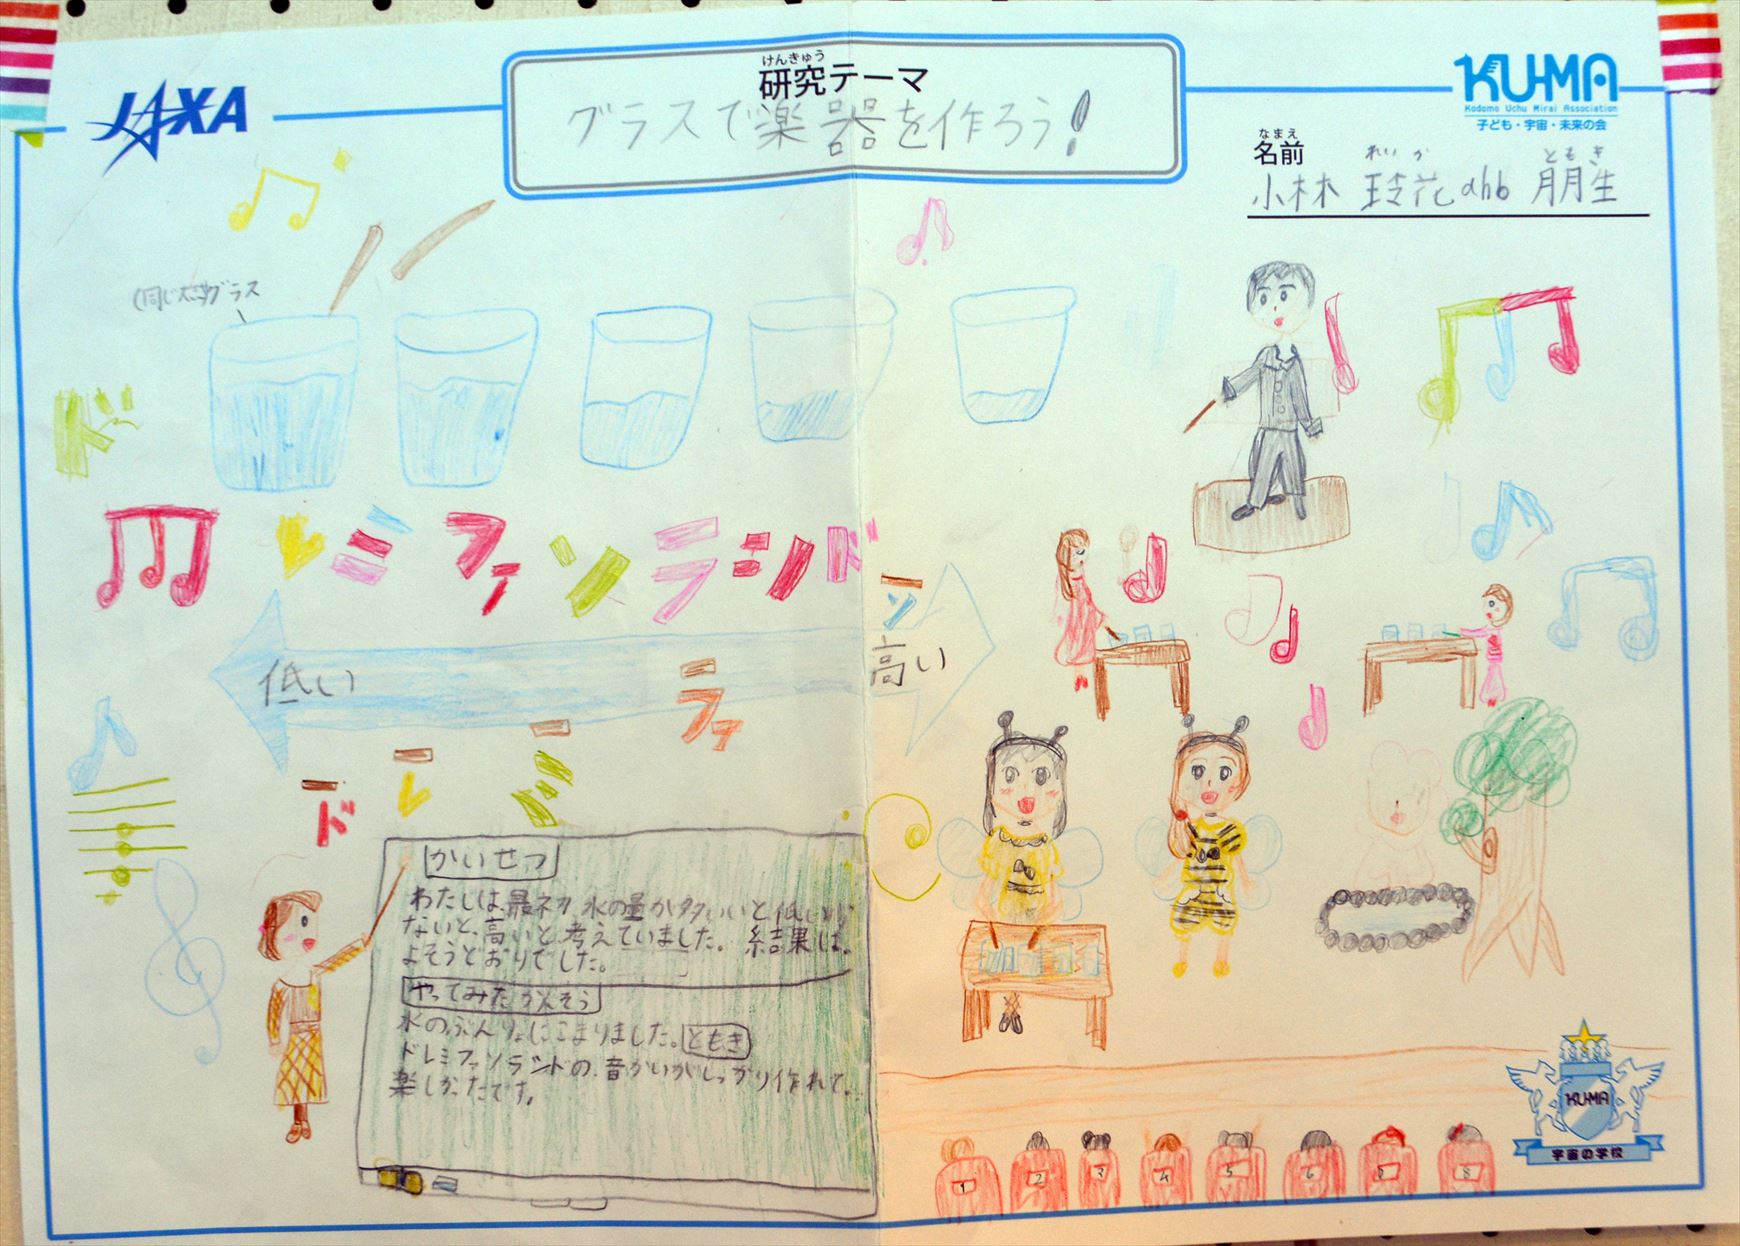 JAXA
けんきゅう
研究テーマ
グラスで楽器を作ろう!
KU-MA
Kodomo Uchu Mirai Association
子ども・宇宙・未来の会
なまえ
名前
れいか ともき
小林 玲花 and 朋生
(同じ グラス
ド
レミファソラシド
低い
高い
ソ
ファ
ミ
レ
ド
かいせつ
わたしは、最初、水の量が多いと低い
ないと、高いと、考えていました。結果は、
よそうどおりでした。
やってみたかんそう
水のぶんりょにこまりました。ともき
ドレミファソラシドの、音かいがしっかり作れて、
楽しかたです。
1 2 3 4 5 6 7 8
KU-MA
宇宙の学校